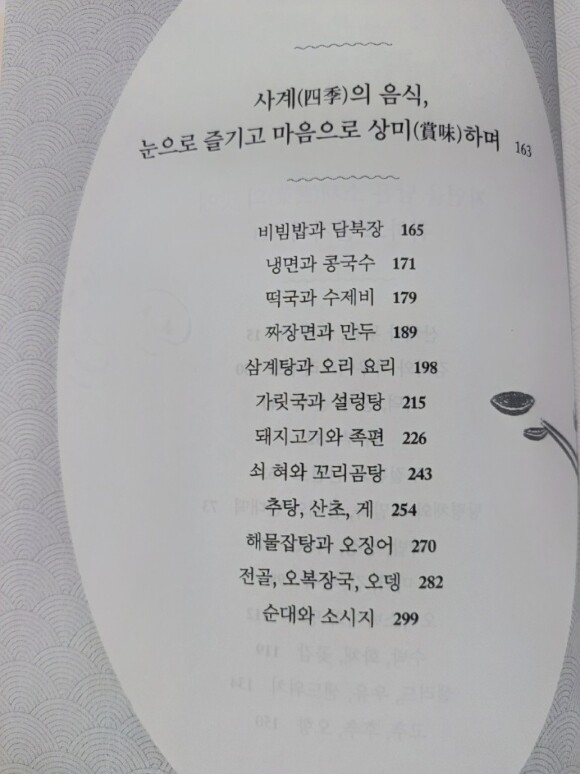 사계(四季)의 음식,
눈으로 즐기고 마음으로 상미(賞味)하며 163
비빔밥과 담북장 165
냉면과 콩국수 171
떡국과 수제비 179
짜장면과 만두 189
삼계탕과 오리 요리 198
가릿국과 설렁탕 215
돼지고기와 족편 226
쇠 혀와 꼬리곰탕 243
추탕, 산초, 게 254
해물잡탕과 오징어 270
전골, 오복장국, 오뎅 282
순대와 소시지 299